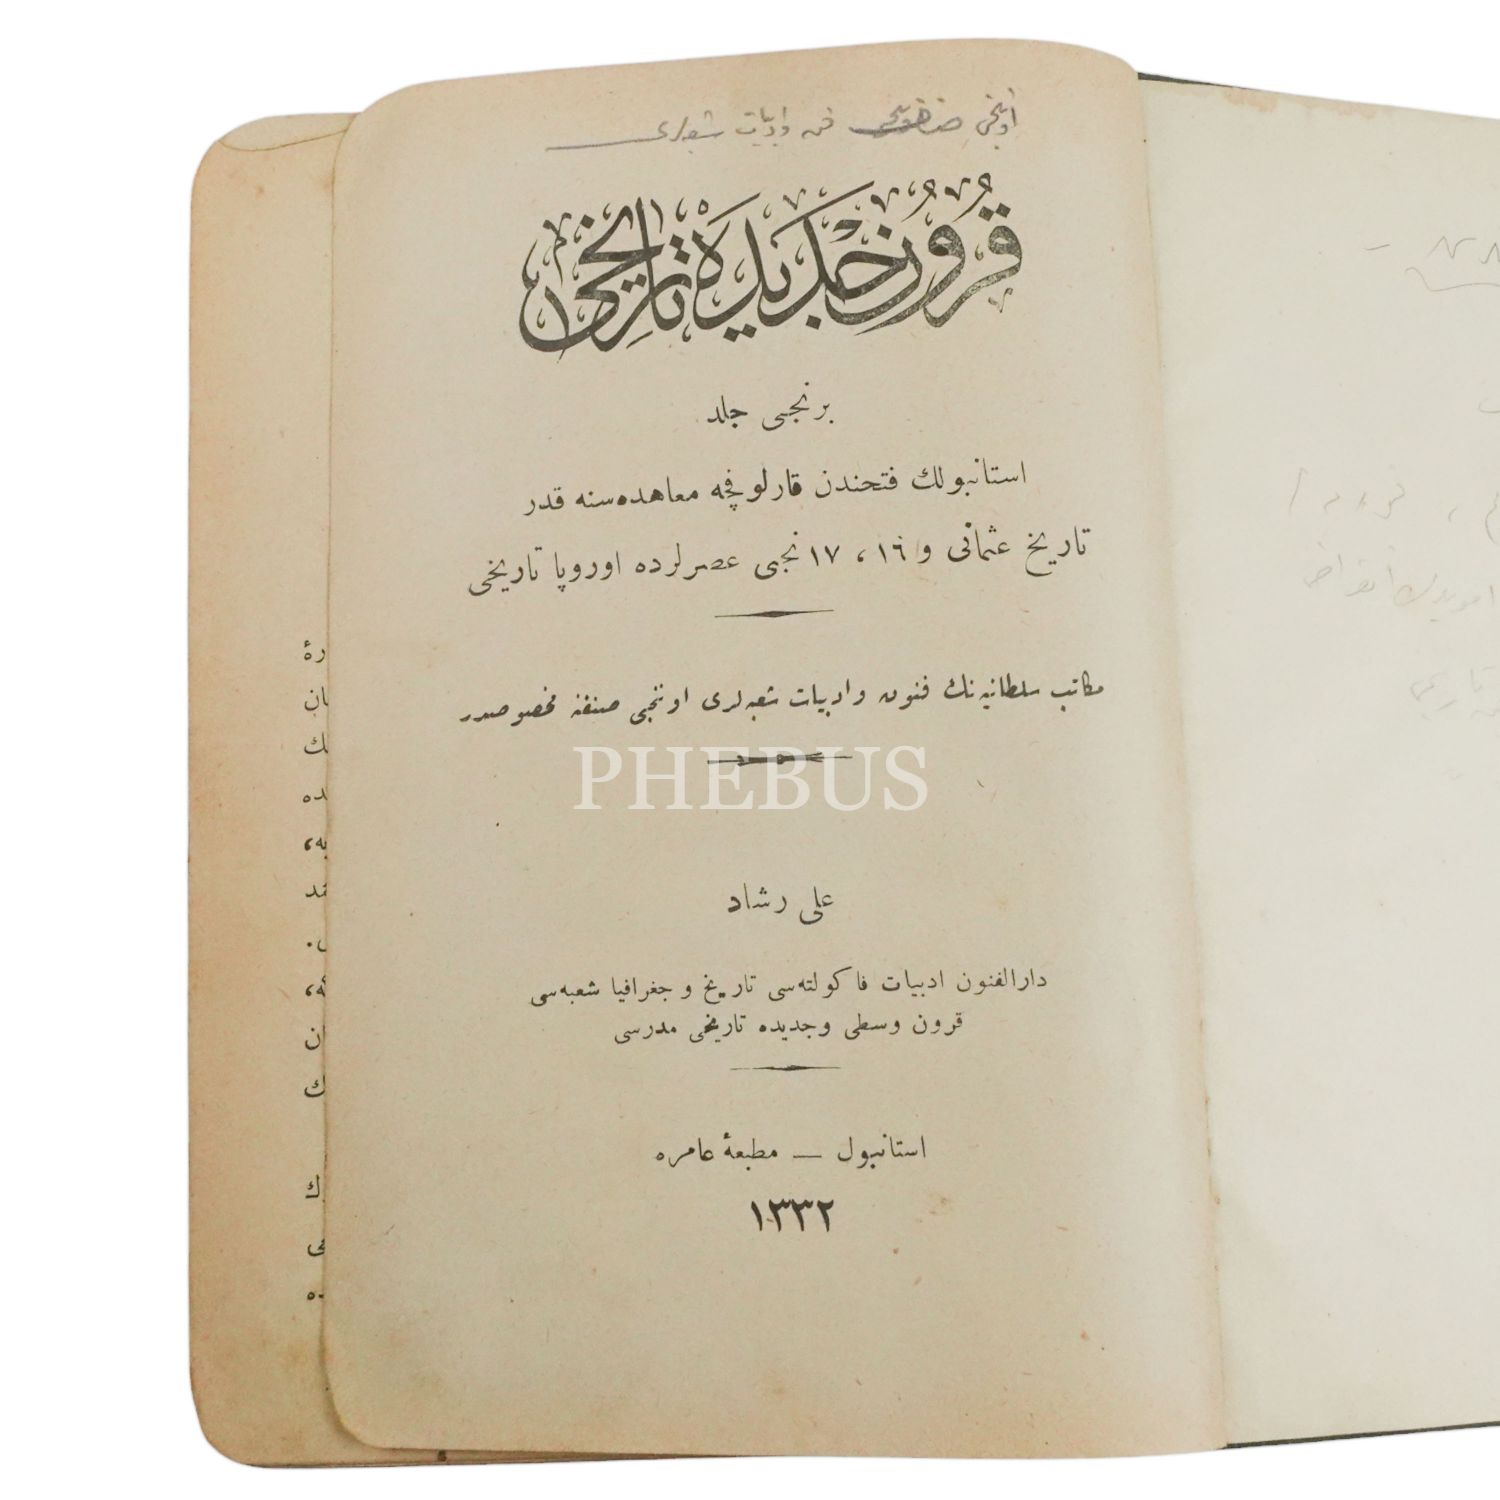 اونجی صنف فن وادبیات شعبه‌لری
قُرُونِ جَدِیدَه تَارِیخی
برنجی جلد
استانبولك فتحندن قارلوفچه معاهده‌سنه قدر
تاریخ عثمانی و ١٦ ، ١٧ نجی عصرلرده اوروپا تاریخی
مکاتب سلطانیه‌نك فنون وادبیات شعبه‌لری اوننجی صنفنه مخصوصدر
PHEBUS
علی رشاد
دارالفنون ادبیات فاكولته‌سی تاریخ و جغرافیا شعبه‌سی
قرون وسطی وجدیده تاریخی مدرسی
استانبول — مطبعهٔ عامره
١٣٣٢